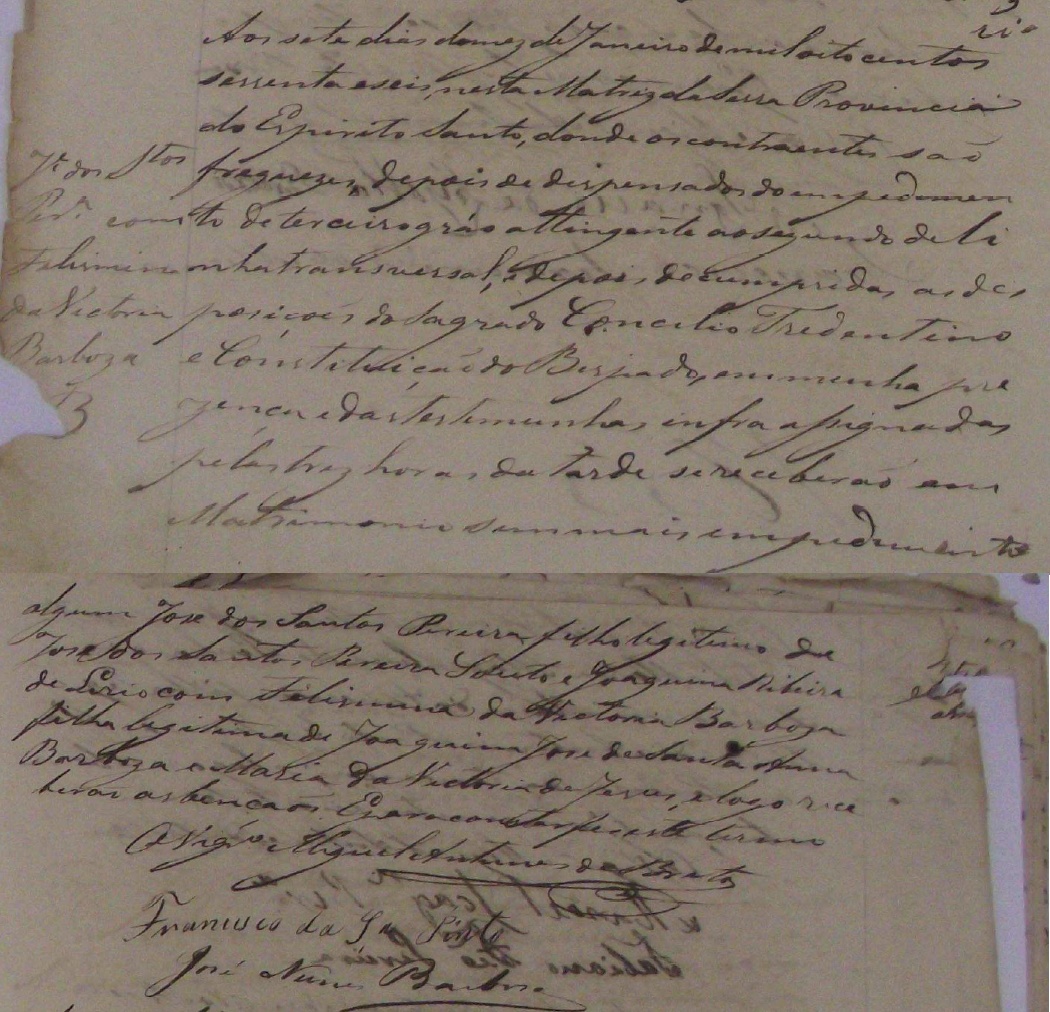 Aos sete dias do mez de Janeiro de mil oito centos
sessenta e seis, nesta Matriz da Serra Provincia
do Espirito Santo, donde os contraentes são
freguezes, depois de dispensados do empedimen
to de terceiro gráo attingente ao segundo de li
nha transversal, e depois de cumpridas as des
posições do Sagrado Concilio Tredentino
e Constituição do Bispado, em minha pre
zenca e das testimunhas infra assignadas
pelas trez horas da tarde se receberão em
Matrimonio sem mais empedimento
Je. dos Stos
Pera. com
Felismina
da Victoria
Barboza
algum Jose dos Santos Pereira filho legitimo de
Jose dos Santos Pereira Souto e Joaquina Ribeira
de Lirio com Felismina da Victoria Barboza
filha legitima de Joaquim Jose de Santa Anna
Barboza e Maria da Victoria de Jesus, e logo rece
berão as bençaos. E para constar fiz este termo
O Vigro. Miguel Antunes de Brito
Francisco da Sa Pinto
José Nunes Barbosa